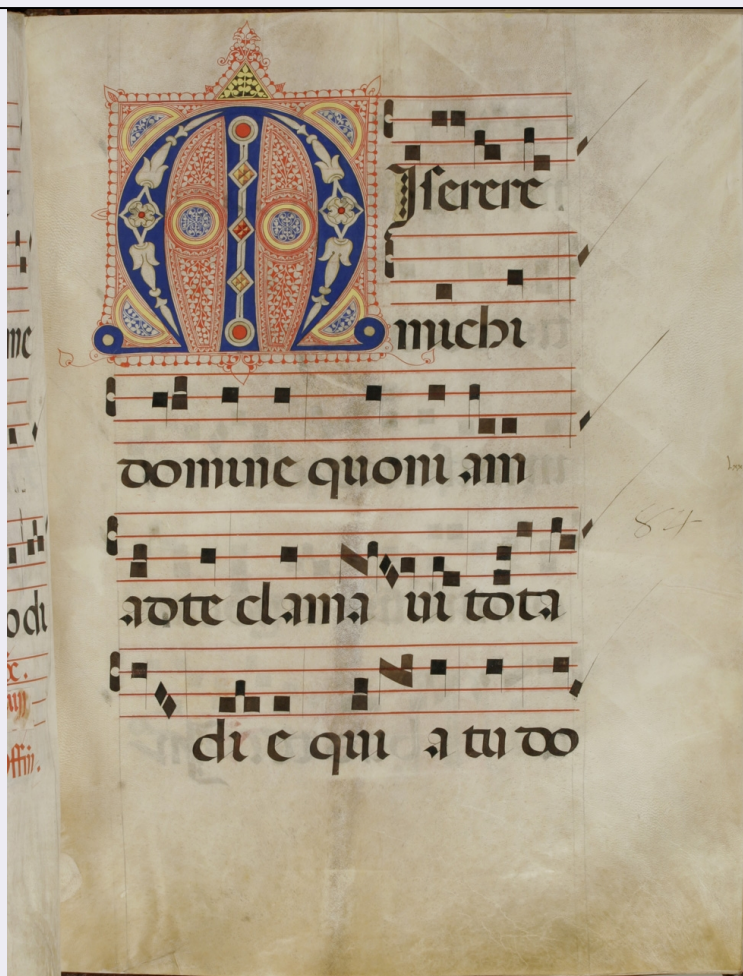 MIserere
michi
domine quoniam
adte clamaui tota
die quia tu do
84
me
odi